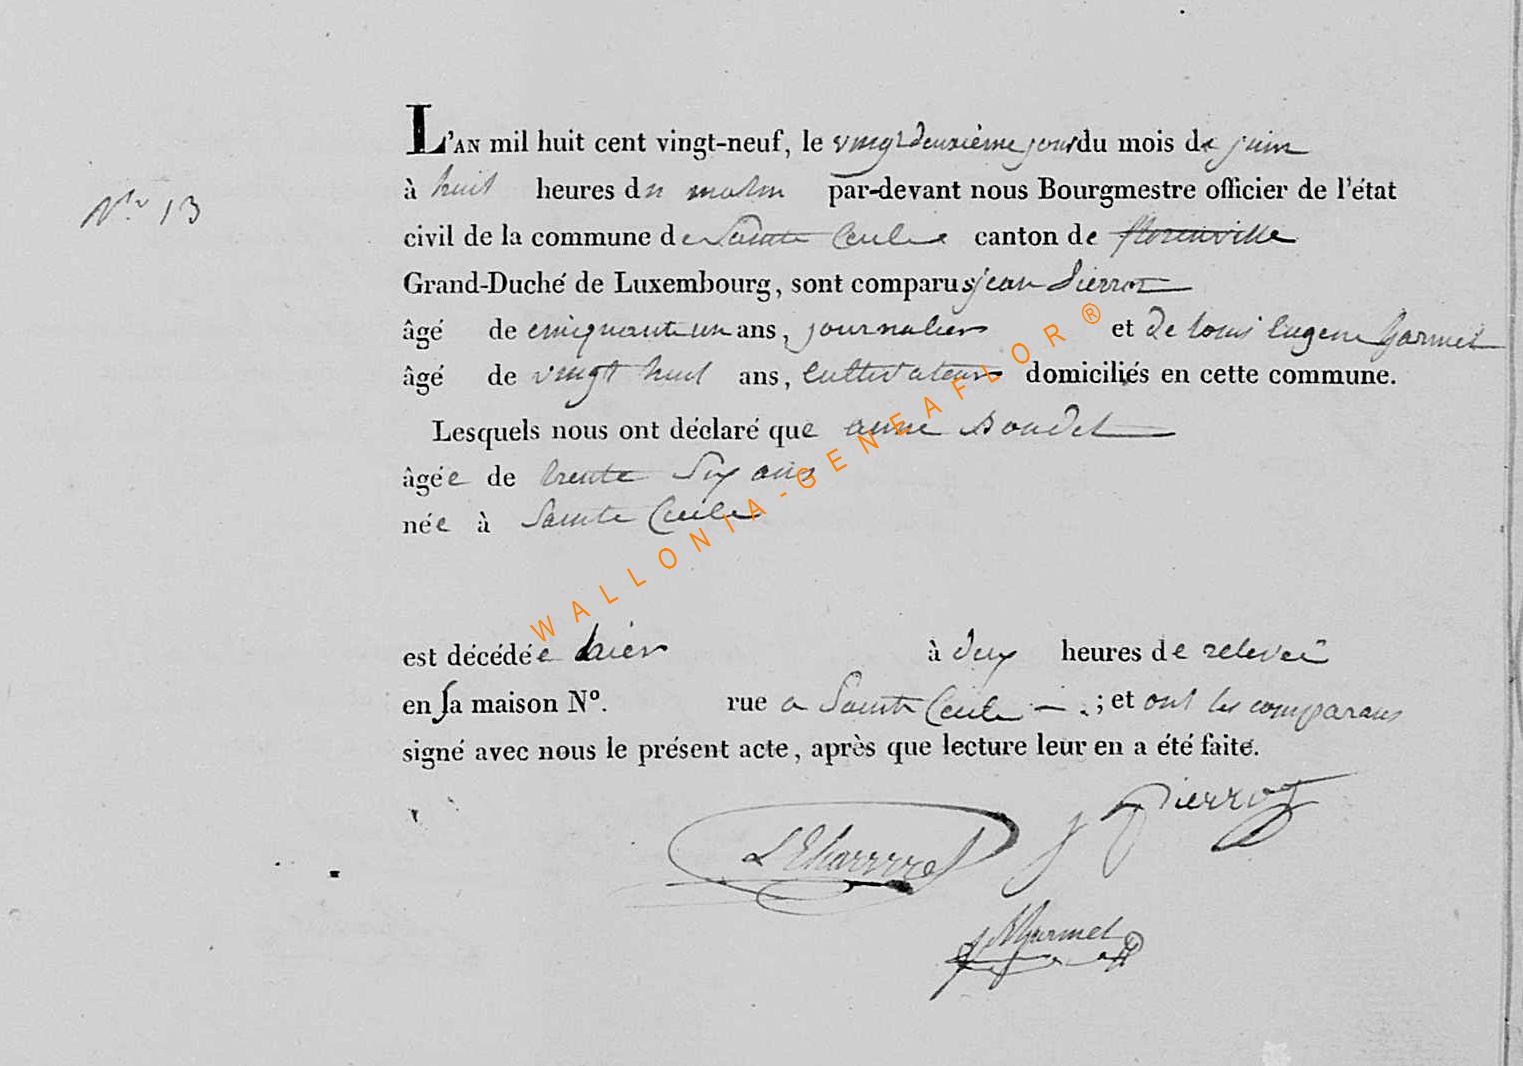 L'AN mil huit cent vingt-neuf, le vingt deuxième jour du mois de juin
N.º 13
à huit heures du matin par-devant nous Bourgmestre officier de l'état
civil de la commune de Sainte Cecile canton de florenville
Grand-Duché de Luxembourg, sont comparus jean Pierrot
âgé de cinquante un ans, journalier et de louis Eugene Garmel
âgé de vingt huit ans, cultivateur domiciliés en cette commune.
Lesquels nous ont déclaré que anne
âgée de trente Six ans
née à Sainte Cecile
WALLONIA-GENEAFLOR ®
est décédée hier à deux heures de relevée
en sa maison Nº. rue a Sainte Cecile — ; et ont les comparans
signé avec nous le présent acte, après que lecture leur en a été faite.
J Pierrot